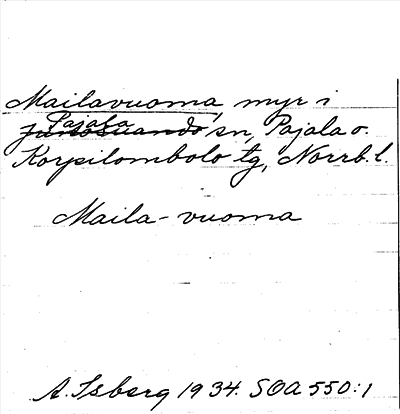 Mailavuoma, myr i
Pajala
Junosuando sn, Pajala o.
Korpilombolo tg, Norrb. l.
Maila-vuoma
A. Isberg 1934. SOA 550:1